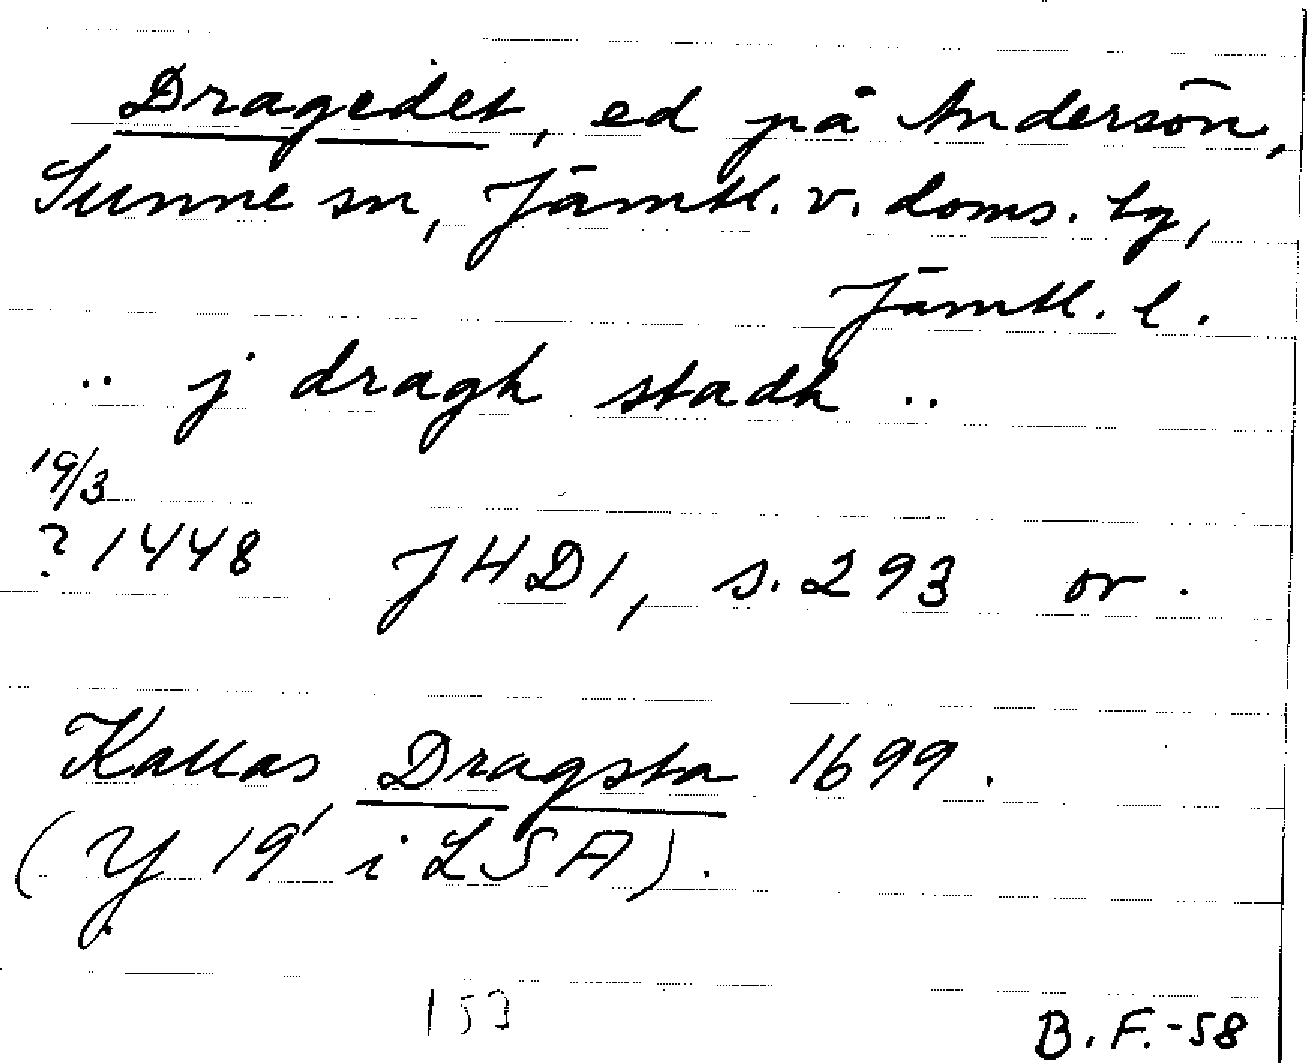 Dragedet, ed på Andersön,
Sunne sn, Jämtl. v. doms. tg,
Jämtl. l.
.. j dragh stadh ..
19/3
? 1448 JHD1, s. 293 or.
Kallas Dragsta 1699.
(Y 19' i LSA).
153
B.F.-58